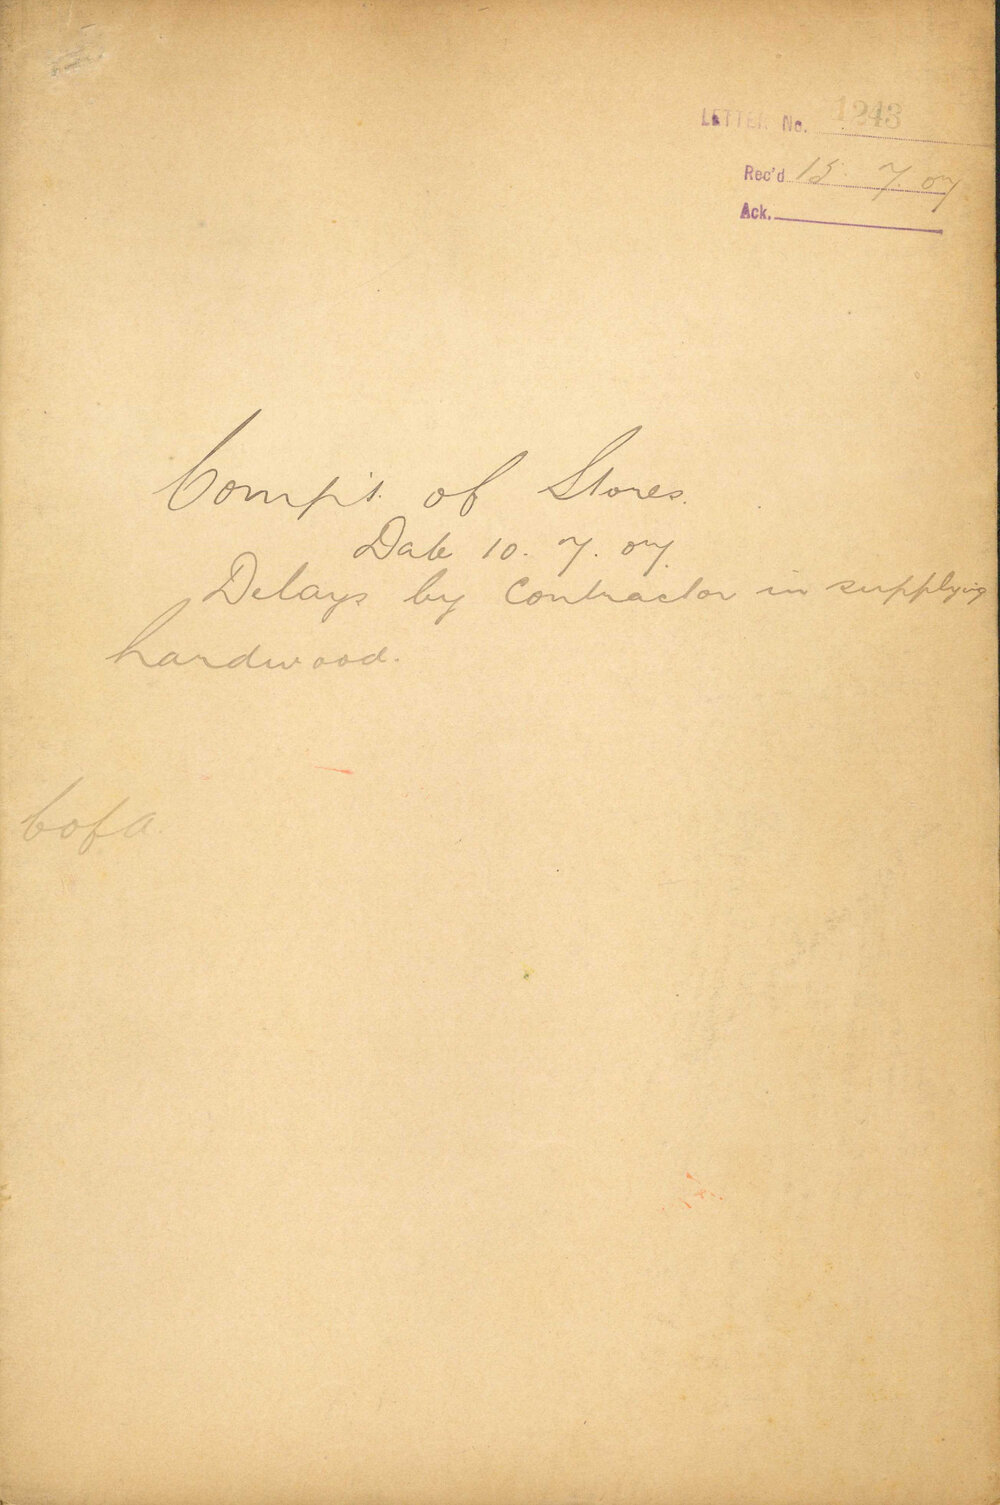 LETTER No. 1243
Rec'd 15. 7. 07
Ack.
Comp't. of Stores.
Date 10. 7. 07.
Delays by contractor in supplying
hardwood.
C of A.